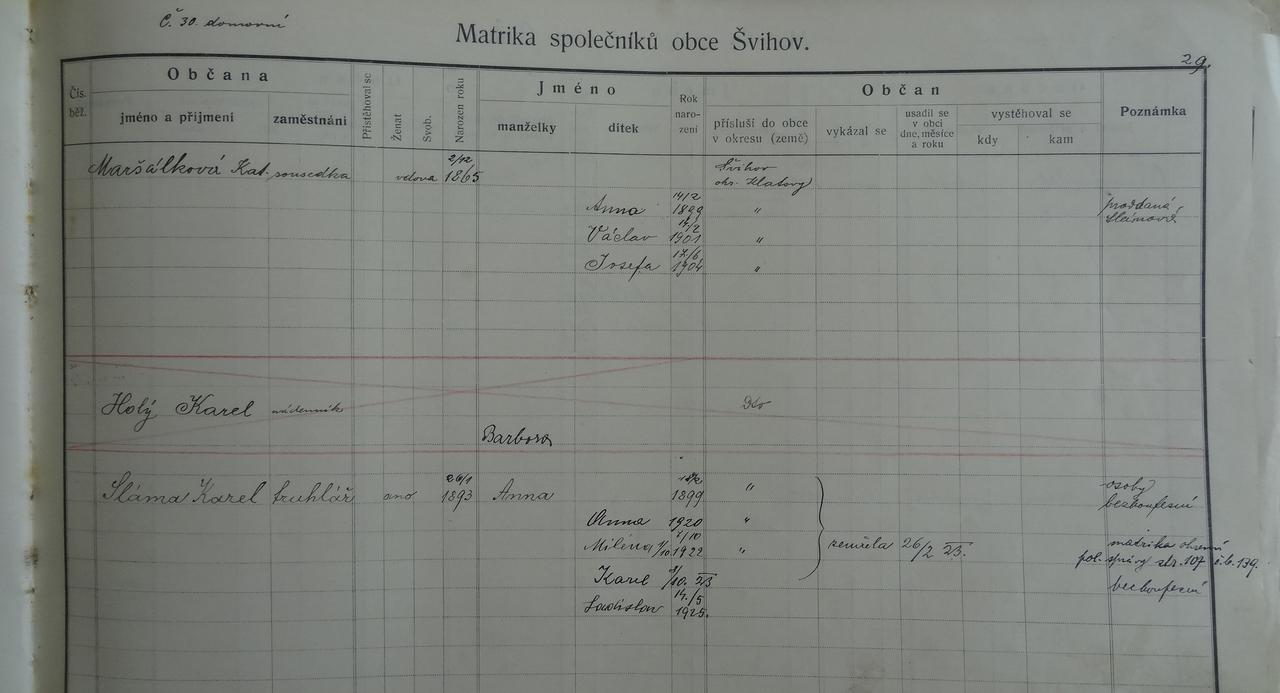 Č. 30. domovní
Matrika společníků obce Švihov.
29.
Čís. běž.
Občana
jméno a přijmení
zaměstnání
Přistěhoval se
Ženat
Svob.
Narozen roku
Jméno
manželky
dítek
Rok naro- zení
Občan
přísluší do obce v okresu (země)
vykázal se
usadil se v obci dne, měsíce a roku
vystěhoval se
kdy
kam
Poznámka
Maršálková Kat. sousedka vdova 2/12 1865 Švihov okr. Klatovy
Anna 14/2 1899 " provdaná Slámová
Václav 1901 "
Josefa 17/6 1904 "
Holý Karel nádenník
Barbora
Sláma Karel truhlář ano 26/1 1893 Anna 1899 " osoby bezkonfesní
Anna 1920 "
Milena 7/10 1922 " zemřela 26/2 23. matrika okresní pol. správy str. 107 č. b. 139.
Karel 9/10. 23 bezkonfesní
Ladislav 14./5 1925.